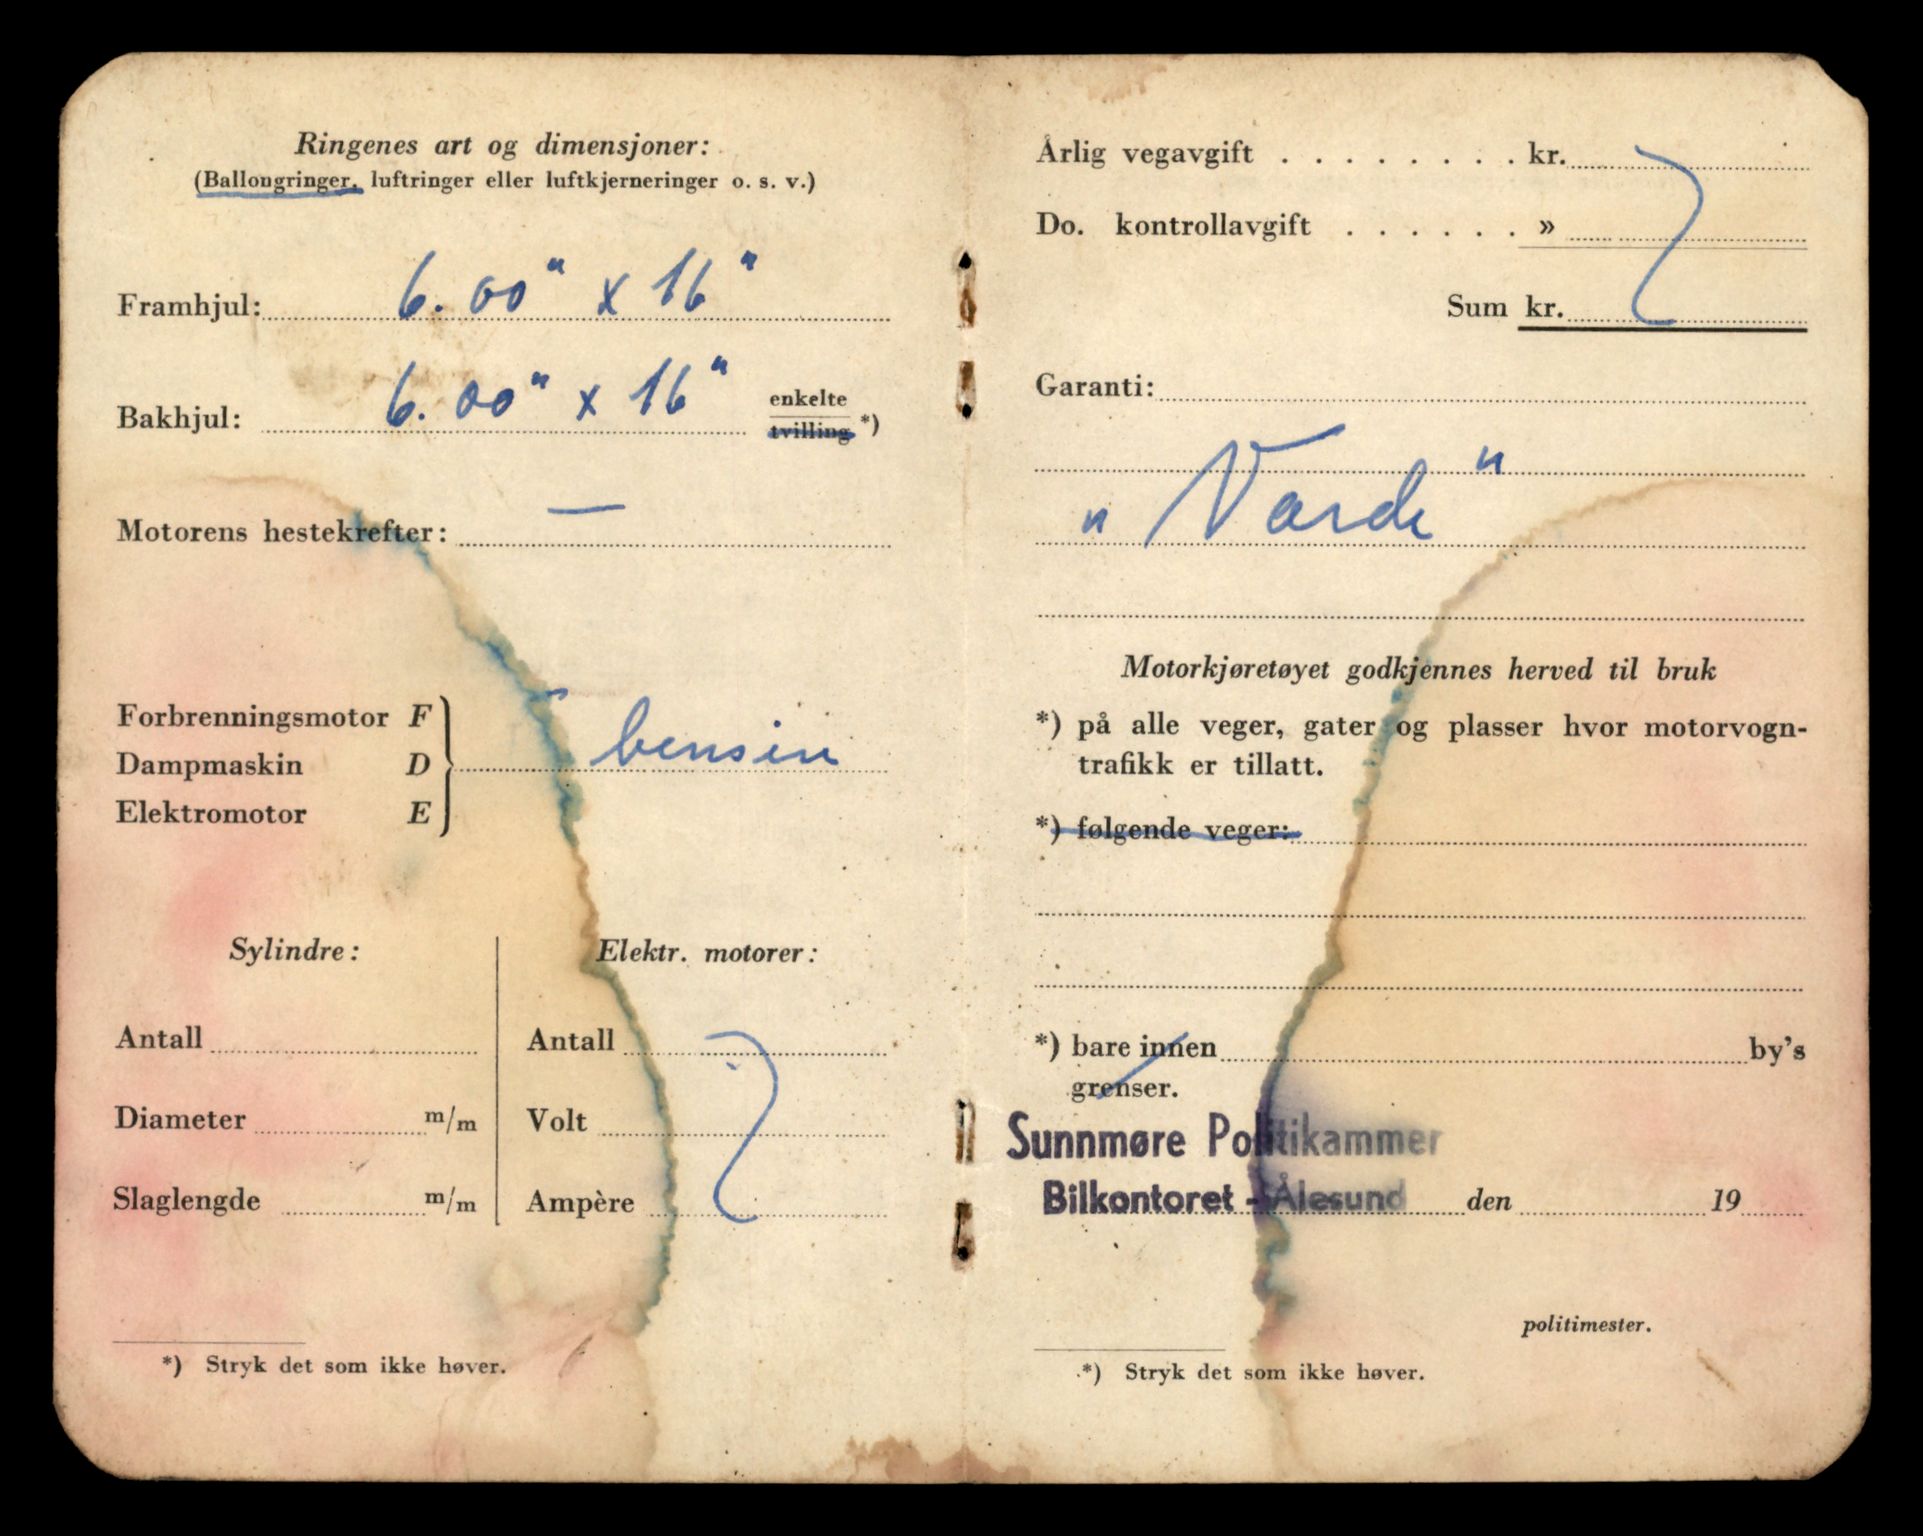 Ringenes art og dimensjoner:
(Ballongringer, luftringer eller luftkjerneringer o. s. v.)
Framhjul: 6.00" x 16"
Bakhjul: 6.00" x 16" enkelte
tvilling *)
Motorens hestekrefter: —
Forbrenningsmotor F
Dampmaskin D bensin
Elektromotor E
Sylindre:
Antall
Diameter m/m
Slaglengde m/m
Elektr. motorer:
Antall
Volt
Ampère
*) Stryk det som ikke høver.
Årlig vegavgift . . . . . . . . kr.
Do. kontrollavgift . . . . . . »
Sum kr.
Garanti:
"Varde"
Motorkjøretøyet godkjennes herved til bruk
*) på alle veger, gater og plasser hvor motorvogn-
trafikk er tillatt.
*) følgende veger:
*) bare innen by's
grenser.
Sunnmøre Politikammer
Bilkontoret - Ålesund den 19
politimester.
*) Stryk det som ikke høver.